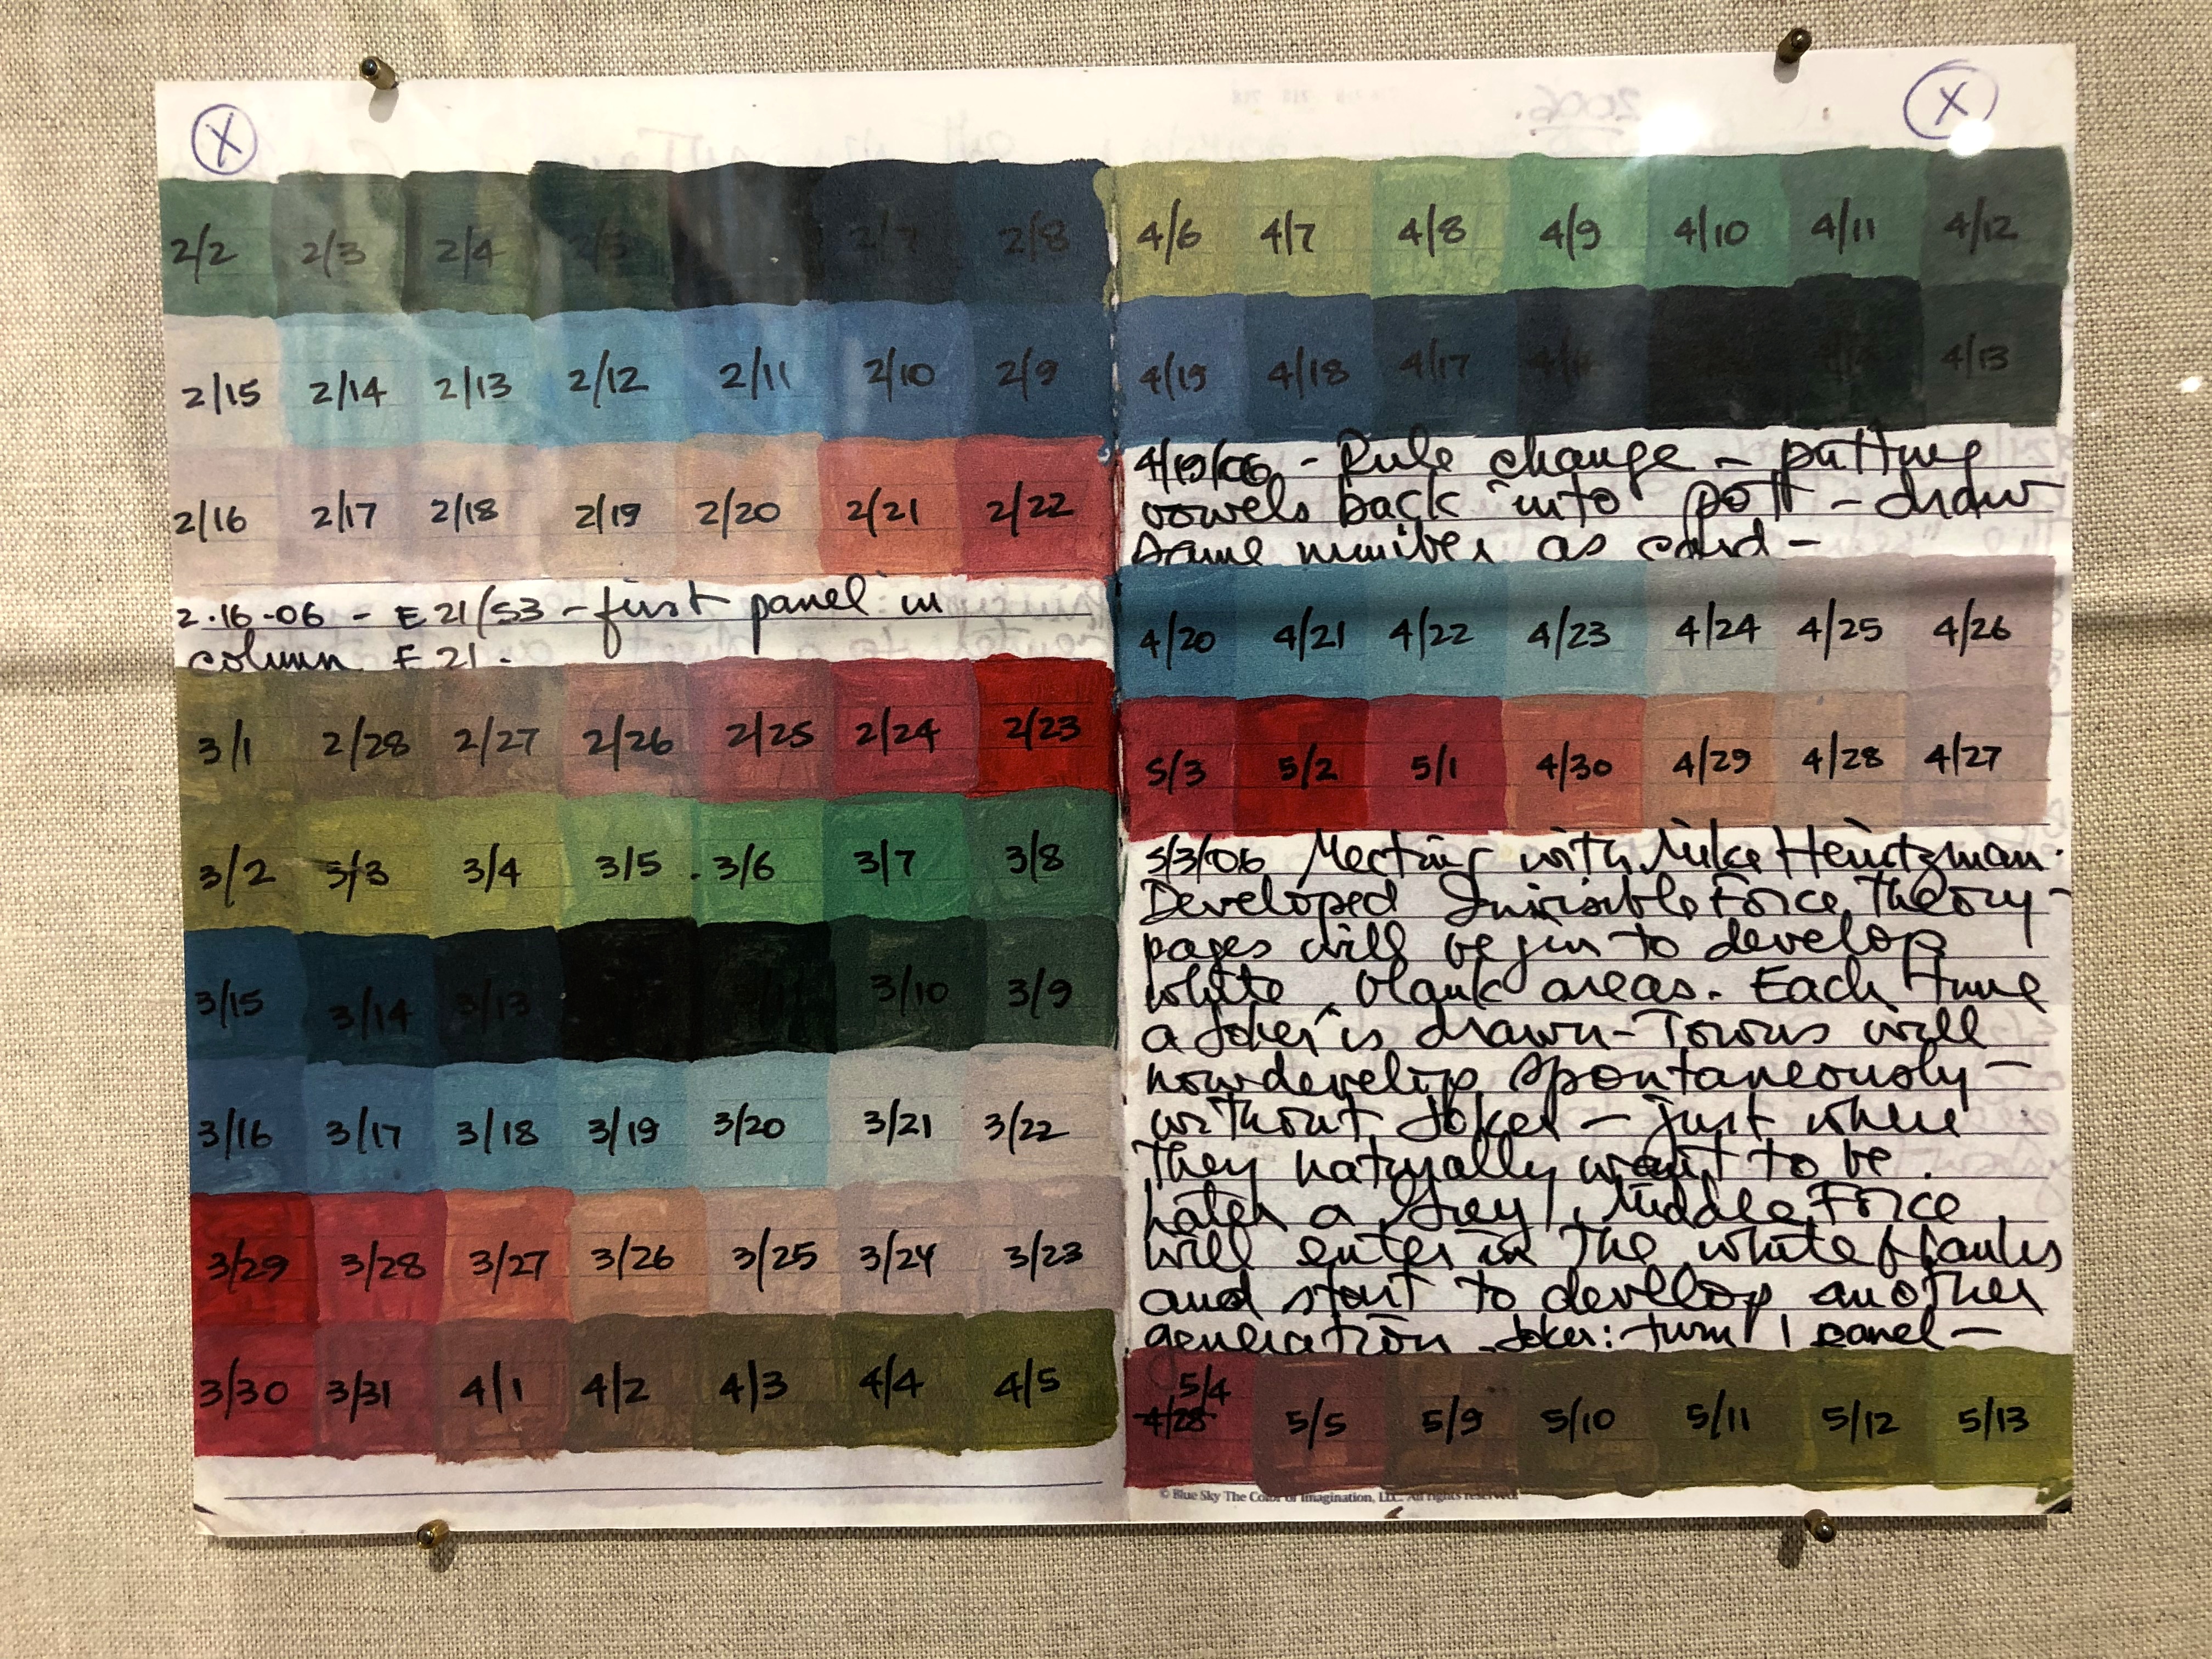 X
2/2 2/3 2/4 2/5 2/7 2/8
2/15 2/14 2/13 2/12 2/11 2/10 2/9
2/16 2/17 2/18 2/19 2/20 2/21 2/22
2.16-06 - E21/S3 - first panel in
column E21.
3/1 2/28 2/27 2/26 2/25 2/24 2/23
3/2 3/3 3/4 3/5 . 3/6 3/7 3/8
3/15 3/14 3/13 3/10 3/9
3/16 3/17 3/18 3/19 3/20 3/21 3/22
3/29 3/28 3/27 3/26 3/25 3/24 3/23
3/30 3/31 4/1 4/2 4/3 4/4 4/5
X
2006.
4/6 4/7 4/8 4/9 4/10 4/11 4/12
4/19 4/18 4/17 4/13
4/19/06 - Rule change - putting
vowels back into pott - draw
same number as card -
4/20 4/21 4/22 4/23 4/24 4/25 4/26
5/3 5/2 5/1 4/30 4/29 4/28 4/27
5/3/06 Meeting with Mike Heintzman.
Developed Invisible Force Theory -
pages will begin to develop
white, blank areas. Each time
a Joker is drawn - Towns will
now develop spontaneously -
without Joker - just where
They naturally want to be.
Later a Grey, Middle Force
will enter in The white blanks
and start to develop another
generation. Joker: turn 1 panel -
5/4
4/28 5/5 5/9 5/10 5/11 5/12 5/13
© Blue Sky The Color of Imagination, LLC. All rights reserved.